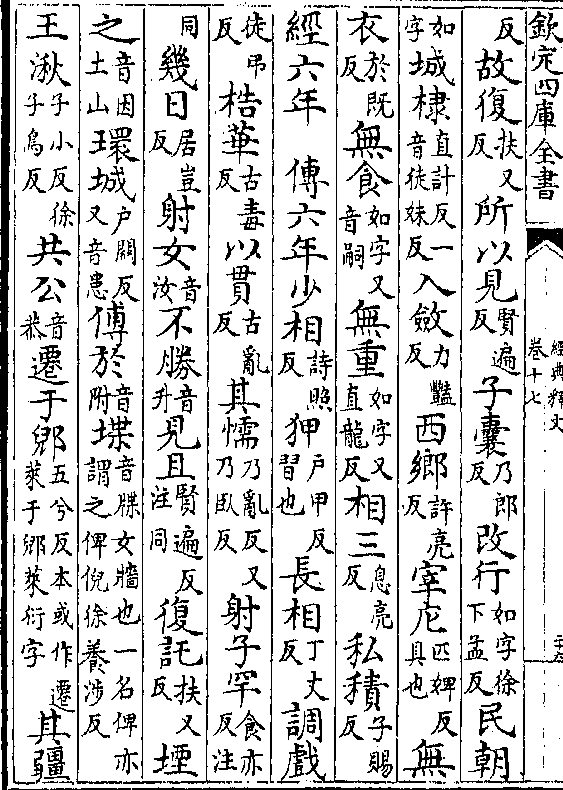 欽定四庫全書
經典釋文
卷十七
反故復扶又反所以見賢遍反子囊乃郎反改行如字徐下孟反民朝
如字城棣直計反一音徒妹反入斂力豔反西鄉許亮反宰庀匹婢反具也無
衣於既反無食如字又音嗣無重如字又直龍反相三息亮反私積子賜反
經六年 傳六年少相詩照反狎戶甲反習也長相丁丈反調戲
徒弔反梏華古毒反以貫古亂反其懦乃亂反又乃臥反射子罕食亦反注
同幾日居豈反射女音汝不勝音升見且賢遍反注同復託扶又反堙
之音因土山環城戶關反又音患傅於音附堞音牒女牆也一名俾亦謂之俾倪徐養涉反
王湫子小反徐子鳥反共公音恭遷于郳五兮反本或作遷萊于郳萊衍字其疆